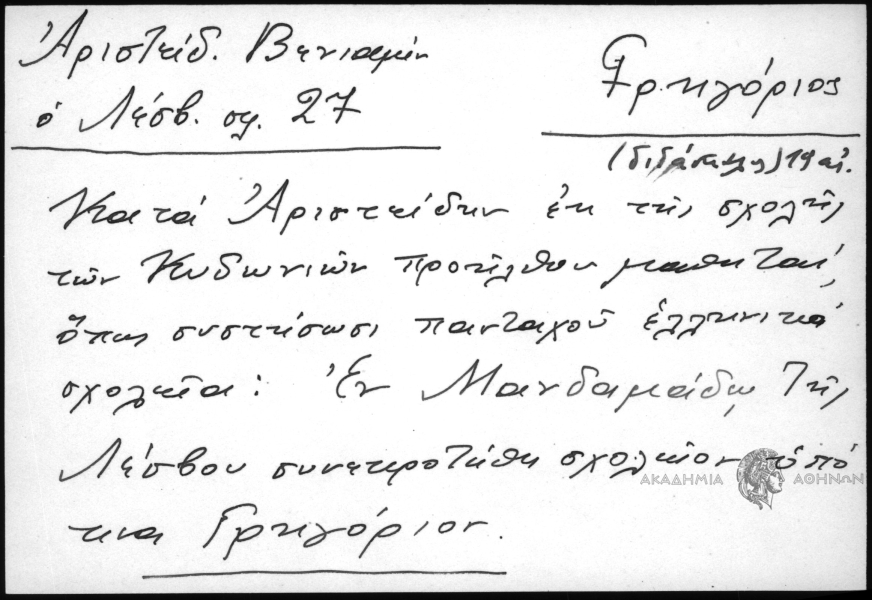 Ἀριστείδ. Βενιαμίν
ὁ Λέσβ. σελ. 27
Γρηγόριος
(διδάσκαλος) 19 αἰ.
Κατά Ἀριστείδην ἐκ τῆς σχολῆς
τῶν Κυδωνιῶν προῆλθον μαθηταί,
ὅπως συστήσωσι πανταχοῦ ἑλληνικά
σχολεῖα: Ἐν Μανδαμάδῳ τῆς
Λέσβου συνεκροτήθη σχολεῖον ὑπό
τινα Γρηγόριον.
ΑΚΑΔΗΜΙΑ ΑΘΗΝΩΝ